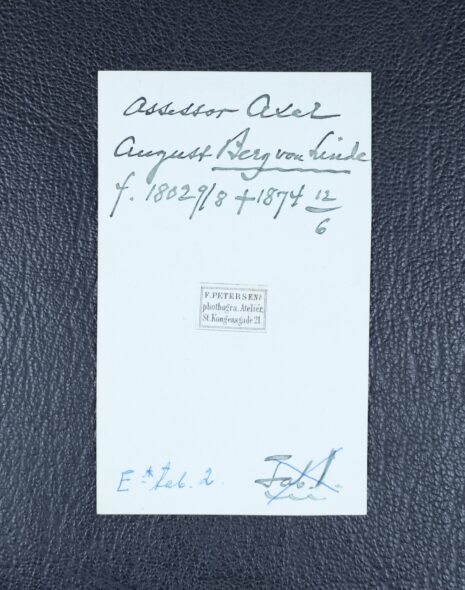 Assessor Axel
August Berg von Linde
f. 1802 9/8 +1874 12/6
F. PETERSENs
phothogra. Atelier
St. Kongensgade 21.
E * tab. 2.
Tab. I.